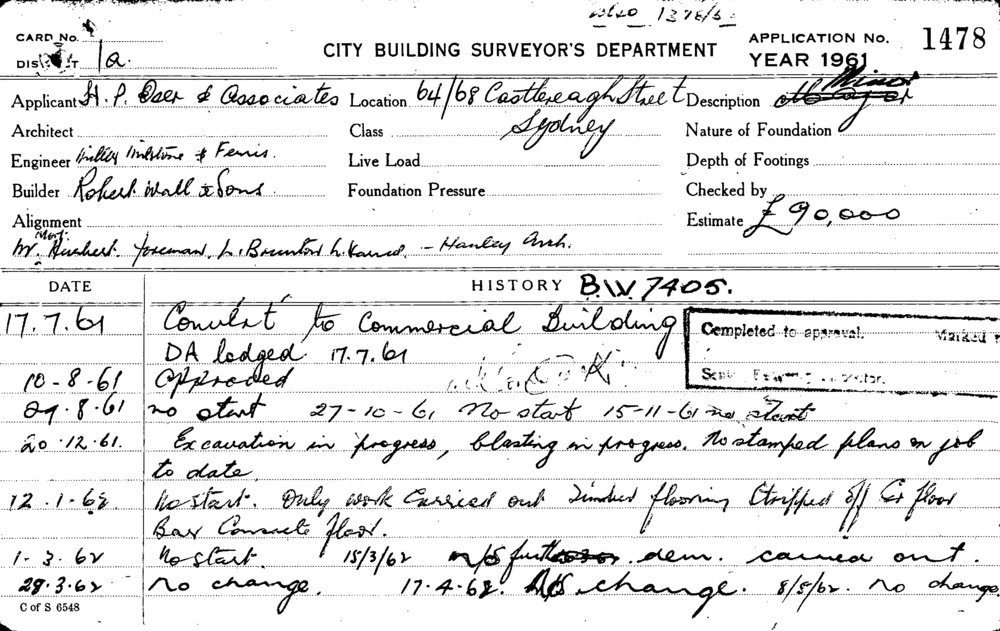 also 1378/5
CARD No.
DISTRICT 1a.
CITY BUILDING SURVEYOR'S DEPARTMENT
APPLICATION No. 1478
YEAR 1961
Applicant H. P. Oser & Associates Location 64/68 Castlereagh Street Description Minor
Architect Class Sydney Nature of Foundation
Engineer & Ferris. Live Load Depth of Footings
Builder Robert Wall & Sons Foundation Pressure Checked by
Alignment Estimate £90,000
Mr. foreman. - Hanley Arch.
DATE HISTORY B.W. 7405.
17.7.61 Convert to Commercial Building
DA lodged 17.7.61
Completed to approval. Marked
10-8-61 Approved
29.8.61 no start 27-10-61 No start 15-11-61 no start
20.12.61. Excavation in progress, blasting in progress. No stamped plans on job
to date.
12.1-62. No start. Only work carried out Timber flooring stripped off Gr floor
Bar Concrete floor.
1-3.62 No start. 15/3/62 n/s dem. carried out.
28.3.62 no change. 17-4-62. change. 8/5/62. no change.
C of S 6548